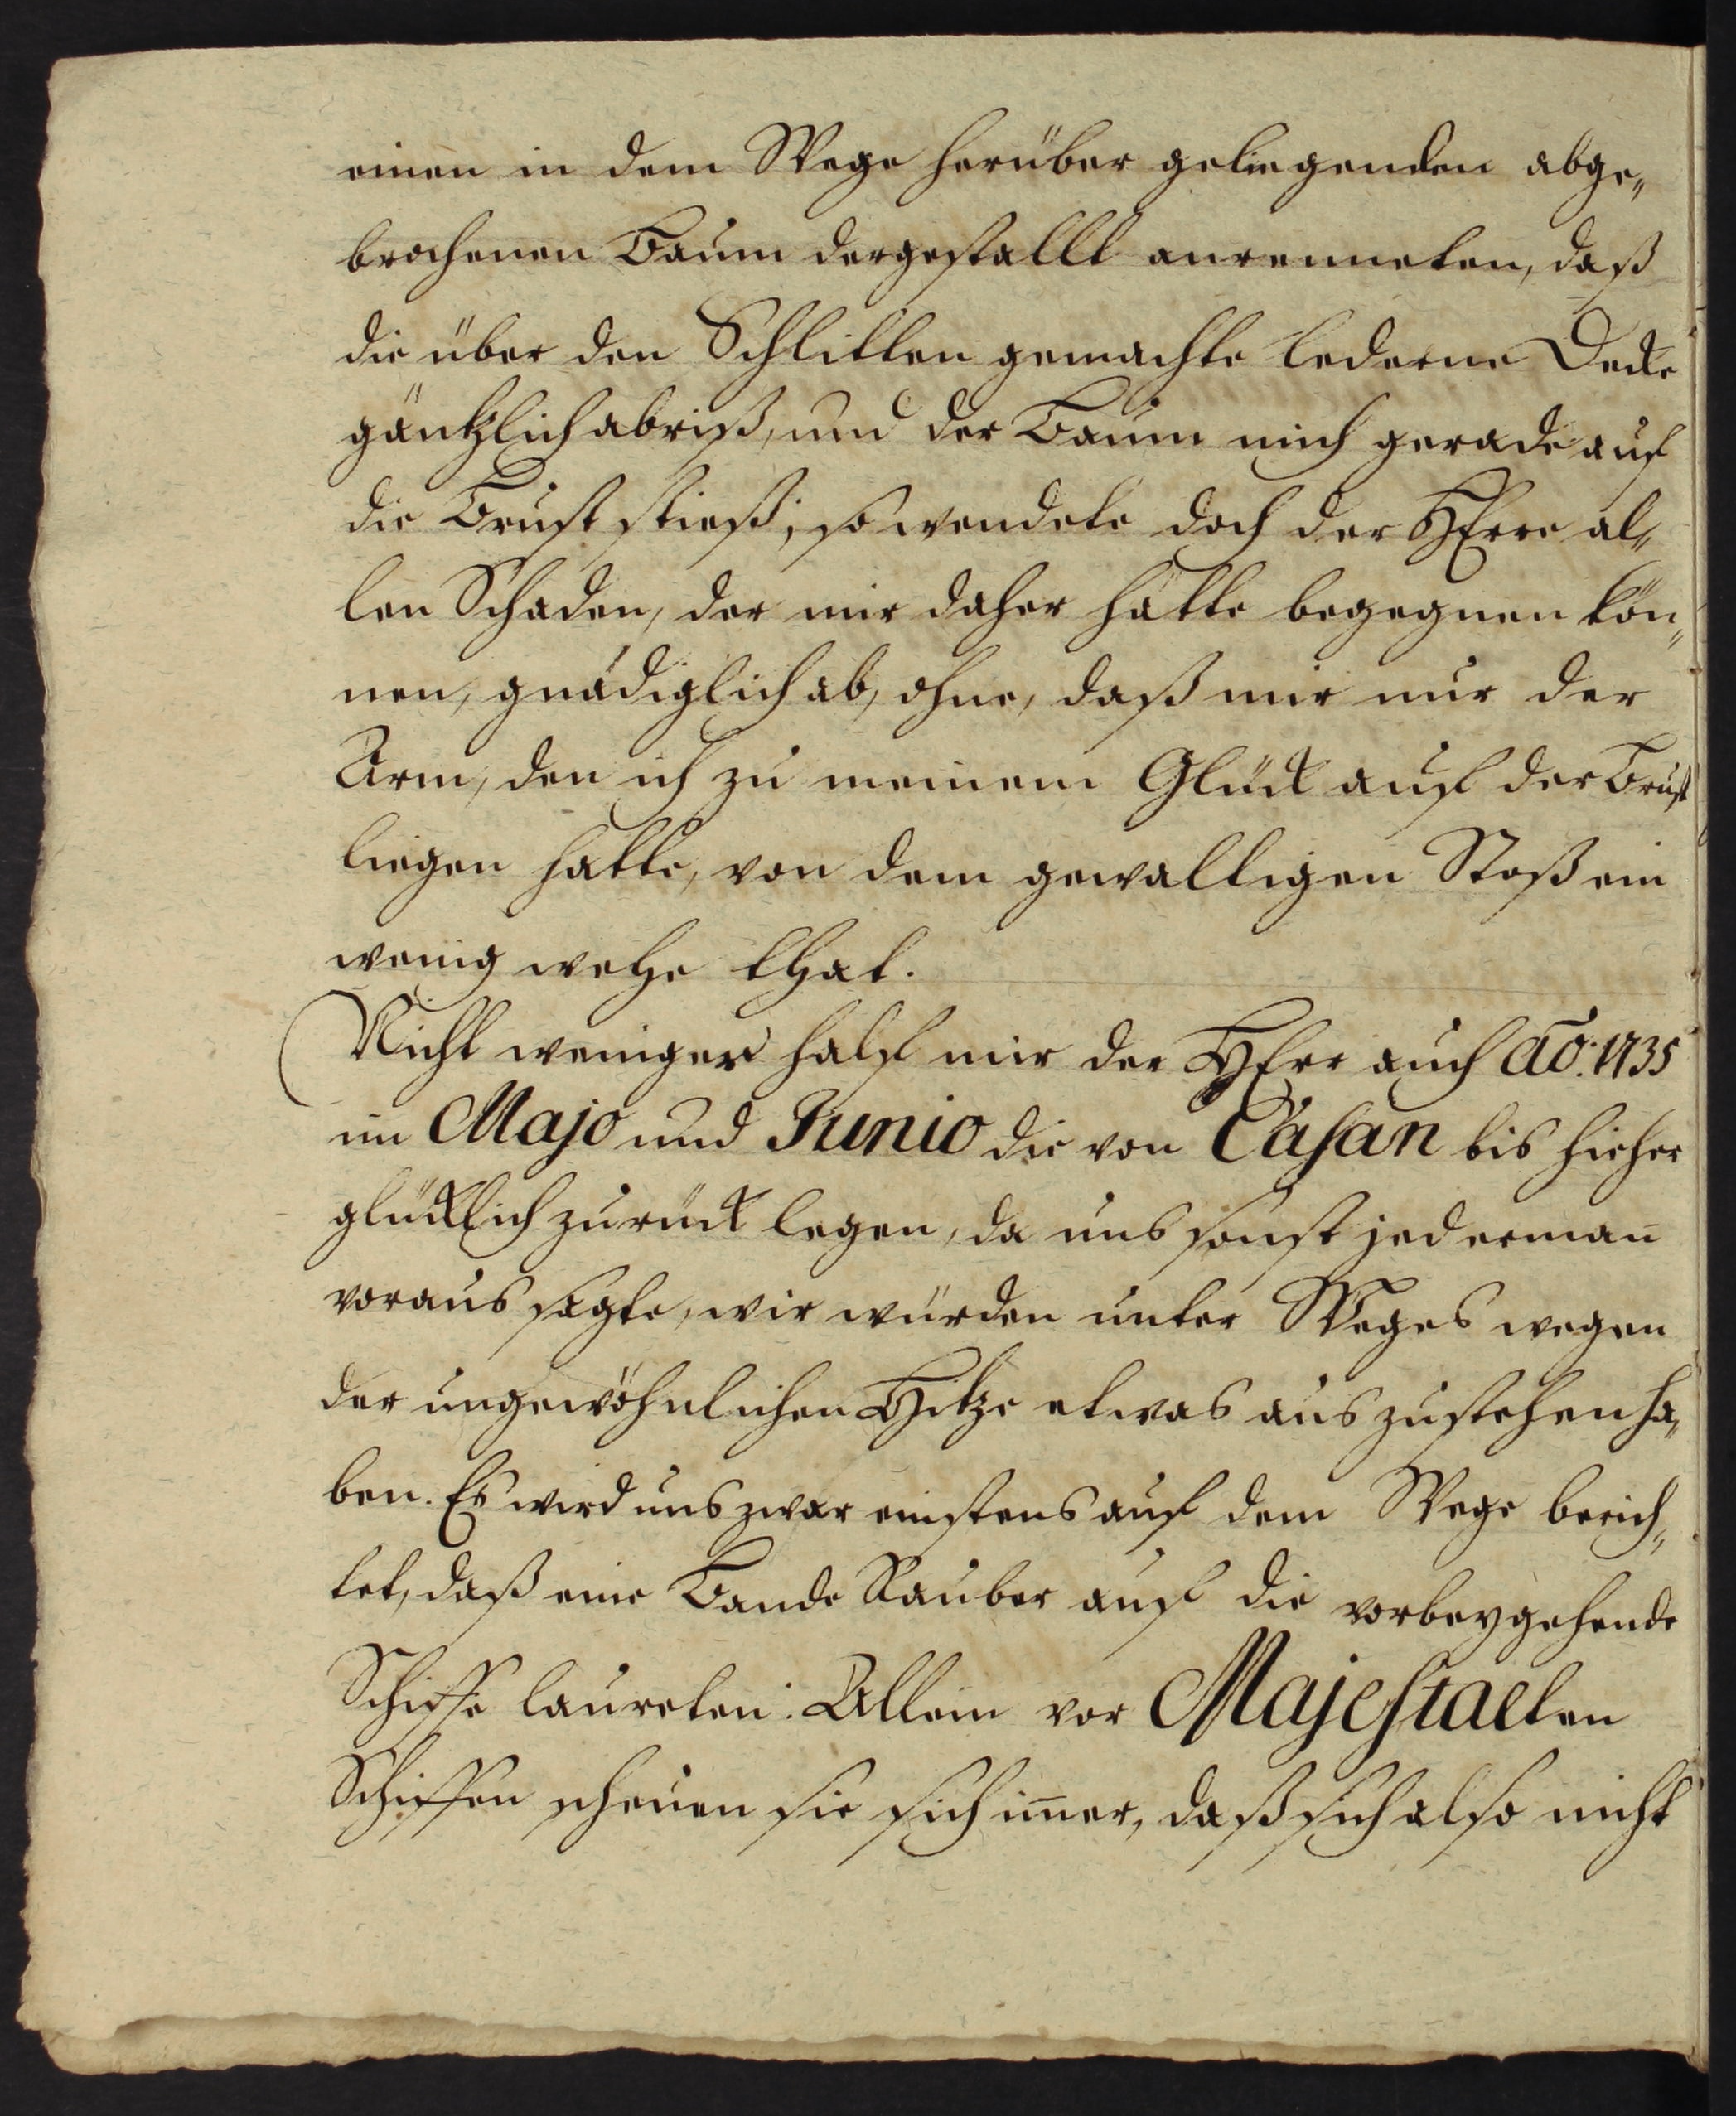 einen in dem Wege herüber geliegenden abge„
brochenen Baum dergestallt anrenneten, daß
die über den Schlitten gemachte lederne Decke
gäntzlich abriß, und der Baum mich gerade auf
die Brust stieß; so wendete doch der HErre al„
len Schaden, der mir daher hätte begegnen kön„
nen, gnädiglich ab, ohne, daß mir nur der
Arm, den ich zu meinem Glück auf der Brust
liegen hatte, von dem gewaltigen Stoß ein
wenig wehe that.
Nicht weniger half mir der HErr auch Ao: 1735
im Majo und Junio die von Casan bis hieher
glücklich zurück legen, da uns sonst jederman̄
voraus sagte, wir würden unter Weges wegen
der ungewöhnlichen Hitze etwas auszustehen ha„
ben. Es wird uns zwar einstens auf dem Wege berich„
tet, daß eine Bande Räuber auf die vorbeygehende
Schiffe laureten: Allein vor Majestaeten
Schiffen scheuen sie sich im̄er, daß sich also nicht